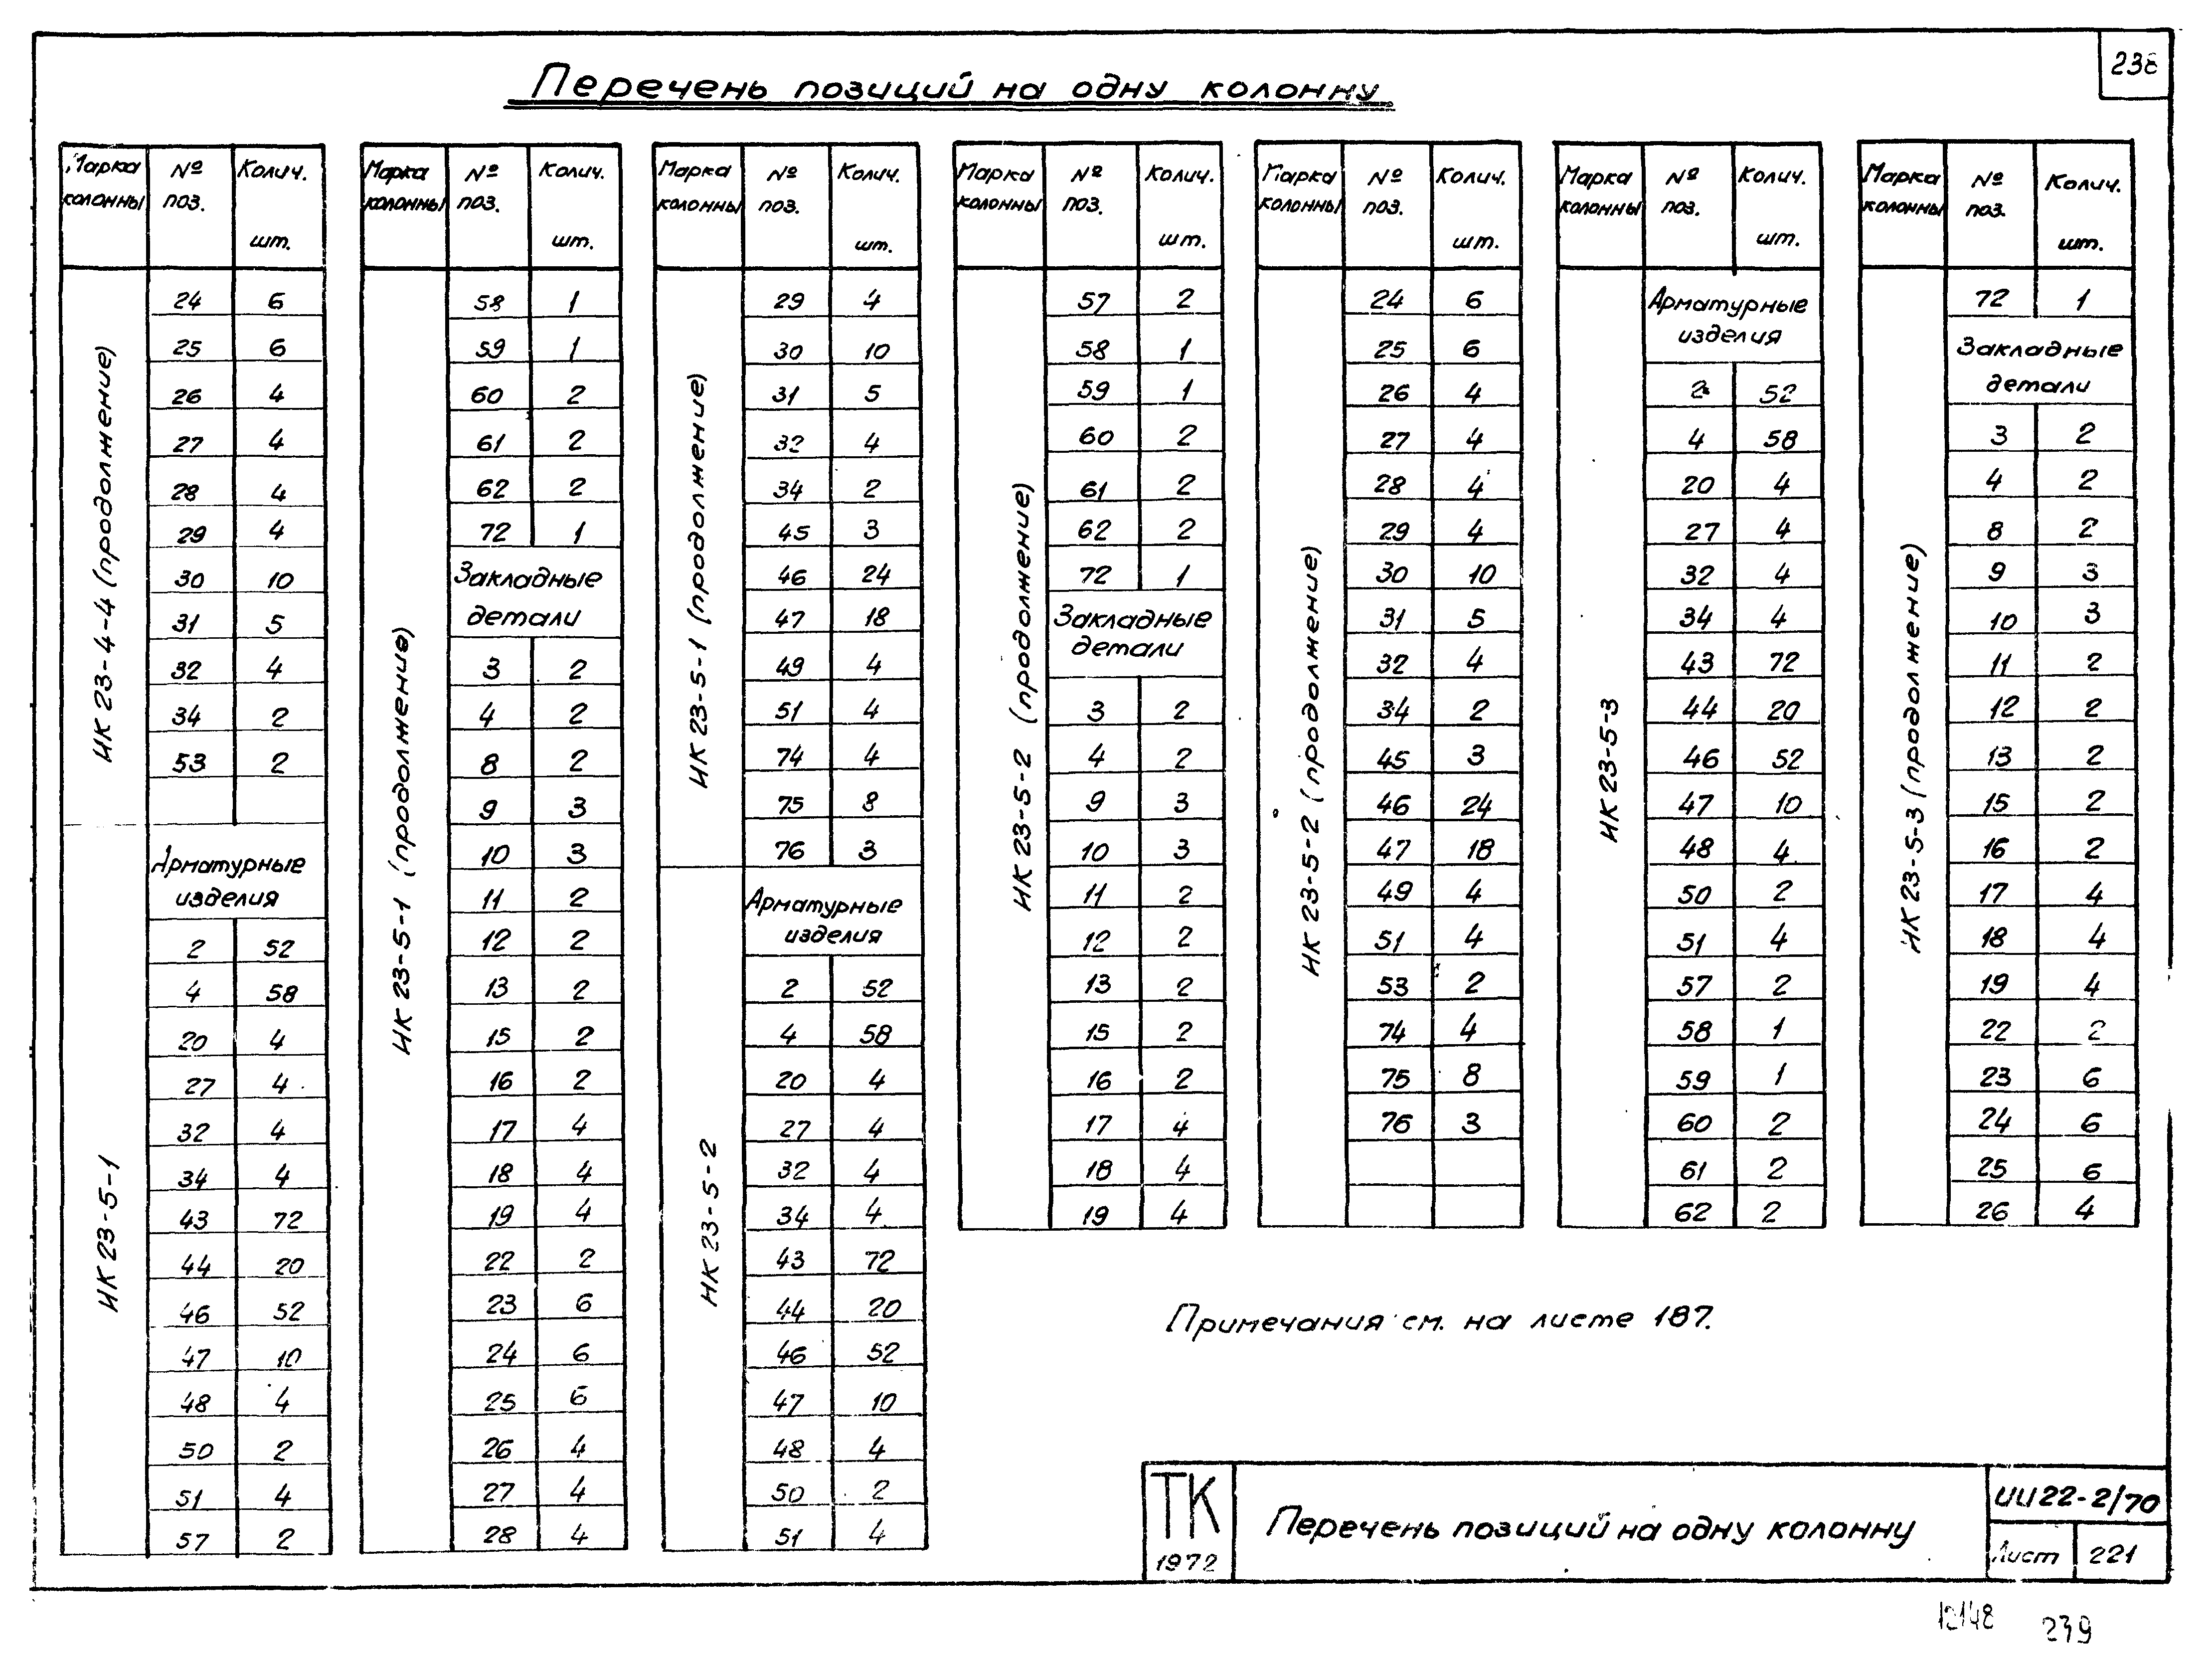 238
Перечень позиций на одну колонну
Марка колонны № поз. Колич. шт.
ИК 23-4-4 (продолжение)
24 6
25 6
26 4
27 4
28 4
29 4
30 10
31 5
32 4
34 2
53 2
ИК 23-5-1
Арматурные
изделия
2 52
4 58
20 4
27 4
32 4
34 4
43 72
44 20
46 52
47 10
48 4
50 2
51 4
57 2
Марка колонны № поз. Колич. шт.
ИК 23-5-1 (продолжение)
58 1
59 1
60 2
61 2
62 2
72 1
Закладные
детали
3 2
4 2
8 2
9 3
10 3
11 2
12 2
13 2
15 2
16 2
17 4
18 4
19 4
22 2
23 6
24 6
25 6
26 4
27 4
28 4
Марка колонны № поз. Колич. шт.
ИК 23-5-1 (продолжение)
29 4
30 10
31 5
32 4
34 2
45 3
46 24
47 18
49 4
51 4
74 4
75 8
76 3
ИК 23-5-2
Арматурные
изделия
2 52
4 58
20 4
27 4
32 4
34 4
43 72
44 20
46 52
47 10
48 4
50 2
51 4
Марка колонны № поз. Колич. шт.
ИК 23-5-2 (продолжение)
57 2
58 1
59 1
60 2
61 2
62 2
72 1
Закладные
детали
3 2
4 2
9 3
10 3
11 2
12 2
13 2
15 2
16 2
17 4
18 4
19 4
Марка колонны № поз. Колич. шт.
ИК 23-5-2 (продолжение)
24 6
25 6
26 4
27 4
28 4
29 4
30 10
31 5
32 4
34 2
45 3
46 24
47 18
49 4
51 4
53 2
74 4
75 8
76 3
Марка колонны № поз. Колич. шт.
ИК 23-5-3
Арматурные
изделия
2 52
4 58
20 4
27 4
32 4
34 4
43 72
44 20
46 52
47 10
48 4
50 2
51 4
57 2
58 1
59 1
60 2
61 2
62 2
Марка колонны № поз. Колич. шт.
ИК 23-5-3 (продолжение)
72 1
Закладные
детали
3 2
4 2
8 2
9 3
10 3
11 2
12 2
13 2
15 2
16 2
17 4
18 4
19 4
22 2
23 6
24 6
25 6
26 4
Примечания см. на листе 187.
ТК
1972
Перечень позиций на одну колонну
ИИ22-2/70
Лист 221
12148 239